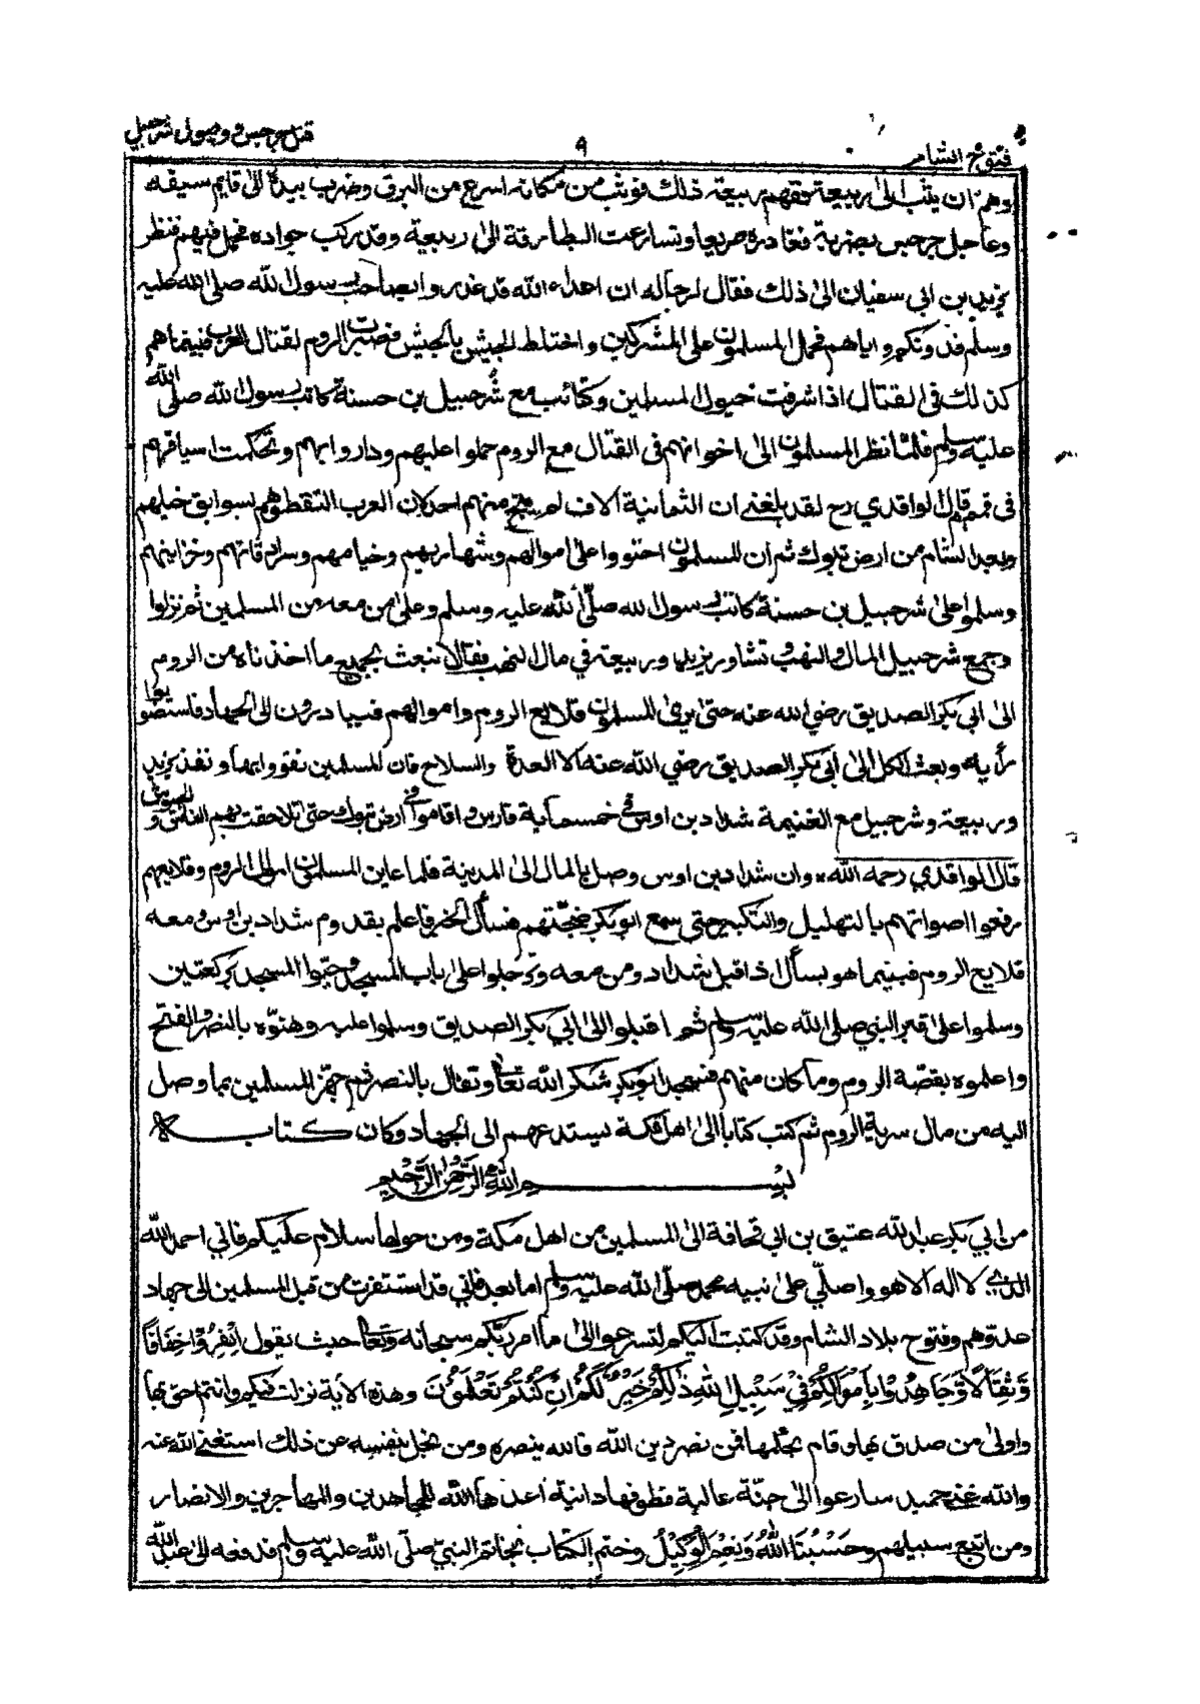 فتوح الشام
٩
قتل جرجيس ووصول شرحبيل
وهم ان يثب الى ربيعة ففهم ربيعة ذلك فوثب من مكانه اسرع من البرق وضرب بيده الى قايم سيفه
وعاجل جرجيس بضربة فغادره صريعا وتسارعت البطارقة الى ربيعة وقد ركب جواده فحمل فيهم فنظر
يزيد بن ابي سفيان الى ذلك فقال لرجاله ان اعداء الله قد غدروا بصاحب رسول الله صلى الله عليه
وسلم فدونكم واياهم فحمل المسلمون على المشركين واختلط الجيش بالجيش فصبرت الروم لقتال العرب فبينما هم
كذلك في القتال اذا شرفت خيول المسلمين وكتائب مع شرحبيل بن حسنة كاتب رسول الله صلى الله
عليه وسلم فلما نظر المسلمون الى اخوانهم في القتال مع الروم حملوا عليهم وداروا بهم وتحكمت اسيافهم
في قممهم قال الواقدي رح لقد بلغني ان الثمانية الاف لم ينج منهم احد لان العرب التقطوهم بسوابق خيلهم
وبعد الشام من ارض تبوك ثم ان المسلمون احتووا على اموالهم وشهاريهم وخيامهم وسرادقاتهم وخزاينهم
وسلموا على شرحبيل بن حسنة كاتب رسول الله صلّى الله عليه وسلم وعلى من معه من المسلمين ثم نزلوا
وجمع شرحبيل المال والنهب وتشاور يزيد وربيعة في مال النهب فقالا نبعث بجميع ما اخذناه من الروم
الى ابي بكر الصديق رضي الله عنه حتى يرى المسلمون قلايع الروم واموالهم فيبادرون الى الجهاد فاستصوبوا
رأيه وبعث الكل الى ابي بكر الصديق رضي الله عنه الا العدة والسلاح فان المسلمين تقووا بها ونفذ يزيد
وربيعة وشرحبيل مع الغنيمة شداد بن اوس في خمسماية فارس واقاموا في ارض تبوك حتى تلاحقت بهم الناس و الجيوش
قال الواقدي رحمه الله وان شداد بن اوس وصل بالمال الى المدينة فلما عاين المسلمون اموال الروم وقلايعهم
رفعوا اصواتهم بالتهليل والتكبير حتى سمع ابو بكر ضجّتهم فسأل الخبر فاعلم بقدوم شداد بن اوس ومعه
قلايع الروم فبينما هو يسأل اذ اقبل شداد ومن معه وترجلوا على باب المسجد وحيّوا المسجد بركعتين
وسلموا على قبر النبي صلى الله عليه وسلم ثم اقبلوا الى ابي بكر الصديق وسلموا عليه وهنّوه بالنصر والفتح
واعلموه بقصّة الروم وما كان منهم فسجد ابو بكر شكر الله تعالى وتفال بالنصر ثم جهّز المسلمين بما وصل
اليه من مال سرية الروم ثم كتب كتابا الى اهل مكة يستدعهم الى الجهاد وكان كتابه
بسم الله الرحمن الرحيم
من ابي بكر عبد الله عتيق بن ابي قحافة الى المسلمين من اهل مكة ومن حولها سلام عليكم فاني احمد الله
الذي لا اله الا هو واصلّي على نبيه محمد صلّى الله عليه وسلم اما بعد فاني قد استنفرت من قبل المسلمين الى جهاد
عدوهم وفتوح بلاد الشام وقد كتبت اليكم لتسرعوا الى ما امر ربّكم سبحانه وتعالى حيث يقول اِنْفِرُوْا خِفَافًا
وَّثِقَالًا وَّجَاهِدُوْا بِاَمْوَالِكُمْ فِيْ سَبِيْلِ اللهِ ذٰلِكُمْ خَيْرٌ لَّكُمْ اِنْ كُنْتُمْ تَعْلَمُوْنَ وهذه الاية نزلت فيكم وانتم احق بها
واولى من صدق بها وقام بحكمها فمن نصر دين الله فالله ينصره ومن بخل بنفسه عن ذلك استغنى الله عنه
والله غني حميد سارعوا الى جنّة عالية قطوفها دانية أعدها الله للمجاهدين والمهاجرين والانصار
ومن اتبع سبيلهم وحَسْبُنَا اللهُ وَنِعْمَ الْوَكِيْلُ وختم الكتاب بخاتم النبي صلّى الله عليه وسلم فدفعه الى عبد الله